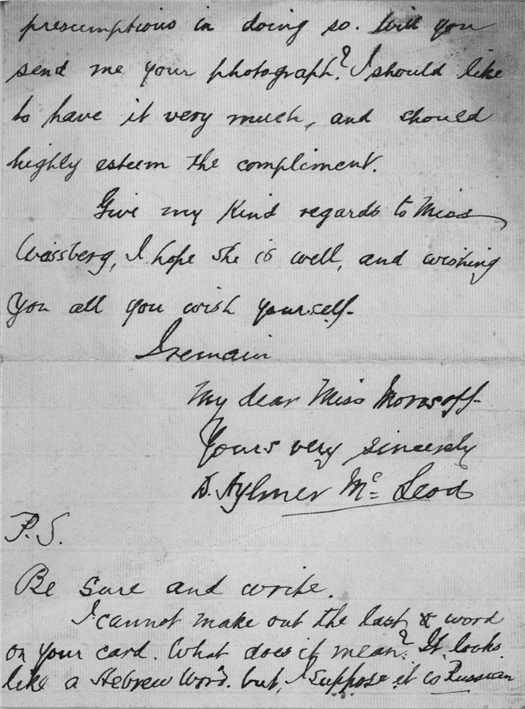 presumptious in doing so. Will you
send me your photograph? I should like
to have it very much, and should
highly esteem the compliment.
Give my kind regards to Miss
Weissberg, I hope she is well, and wishing
you all you wish yourself.
I remain
My dear Miss Morosoff
Yours very sincerely
D. Aylmer McLeod
P.S.
Be sure and write.
I cannot make out the last word
on your card. What does it mean? It looks
like a Hebrew word. but, I suppose it is Russian